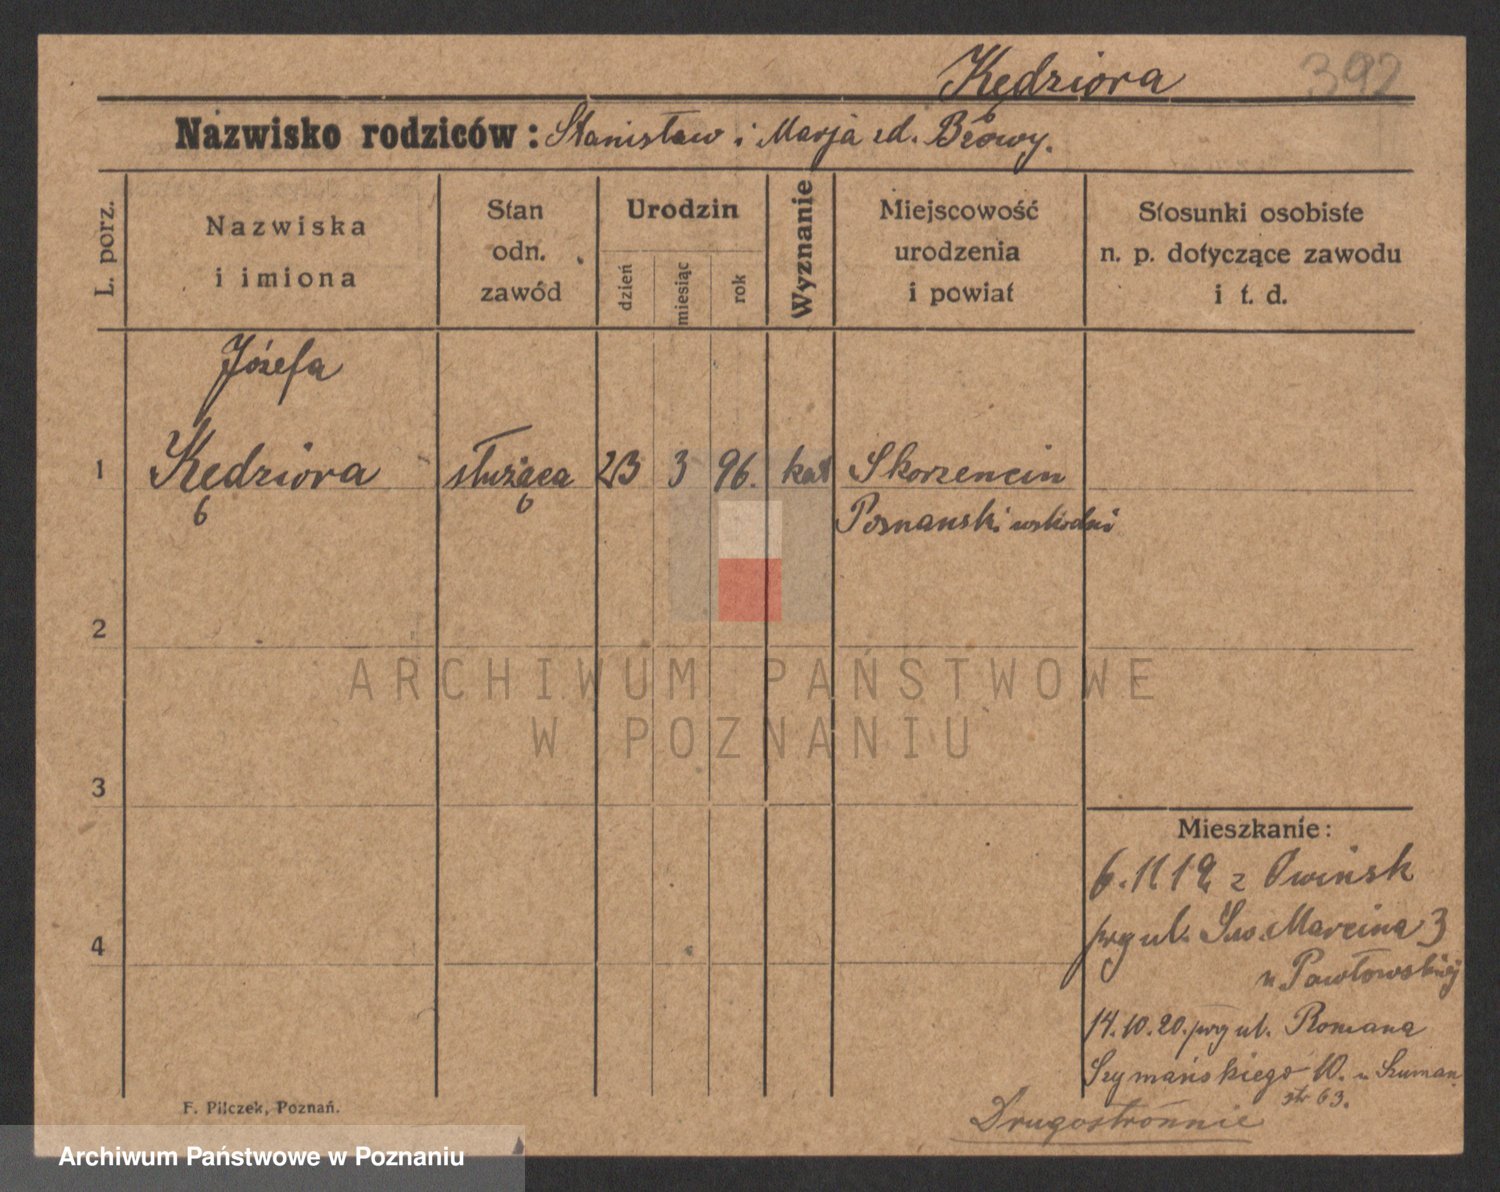 Kędziora 392
Nazwisko rodziców: Stanisław i Marja zd. Bzowy.
L. porz.
Nazwiska
i imiona
Stan
odn.
zawód
Urodzin
dzień
miesiąc
rok
Wyznanie
Miejscowość
urodzenia
i powiat
Stosunki osobiste
n. p. dotyczące zawodu
i t. d.
Józefa
1 Kędziora służąca 23 3 96. kat Skorzencin
Poznanski wschodni
2
ARCHIWUM PAŃSTWOWE
W POZNANIU
3
Mieszkanie:
6.11 19 z Owińsk
prz ul. Św. Marcina 3
u Pawłowskiej
4
14.10.20. prz ul. Romana
Szymańskiego 10. u Szuman
str 63.
F. Pilczek, Poznań.
Drugostronnie
Archiwum Państwowe w Poznaniu